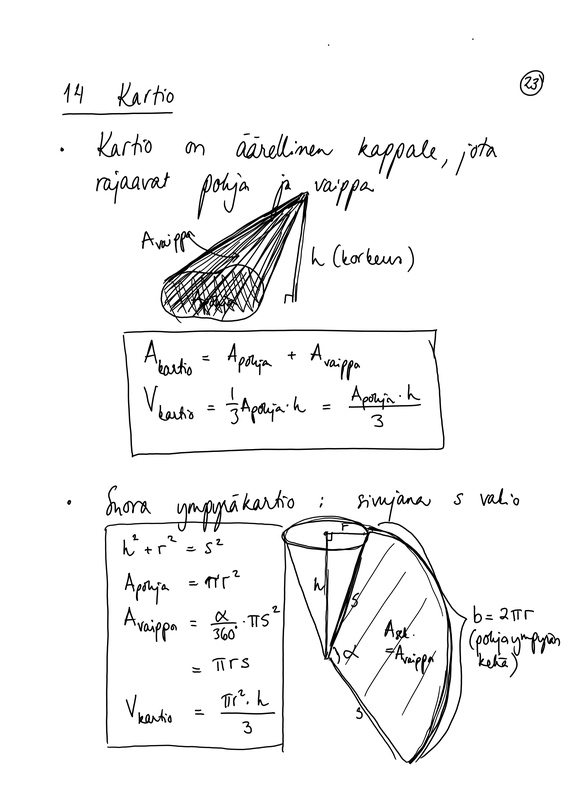 23
14 Kartio
• Kartio on äärellinen kappale, jota
rajaavat pohja ja vaippa
Avaippa
h (korkeus)
Apohja
Akartio = Apohja + Avaippa
Vkartio = 1/3 Apohja · h = Apohja · h / 3
• Suora ympyräkartio : sivujana s vakio
h² + r² = s²
Apohja = πr²
Avaippa = α/360° · πs²
= πrs
Vkartio = πr² · h / 3
r
h
s
α
Asekt.
= Avaippa
s
b = 2πr
(pohjaympyrän
kehä)